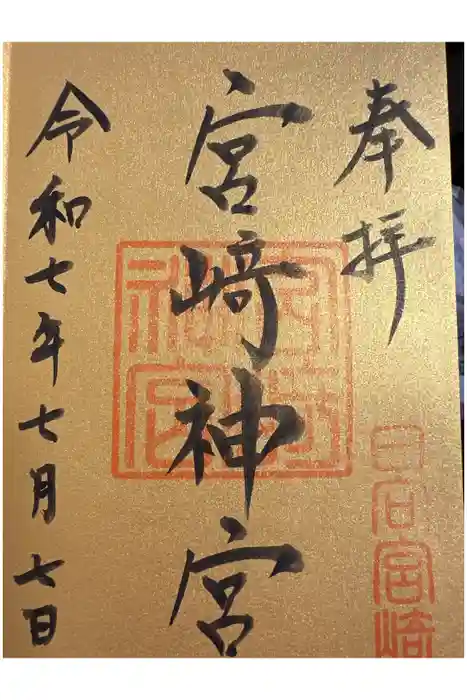 奉拝
宮﨑神宮
令和七年七月七日
宮崎
神宮
宮崎